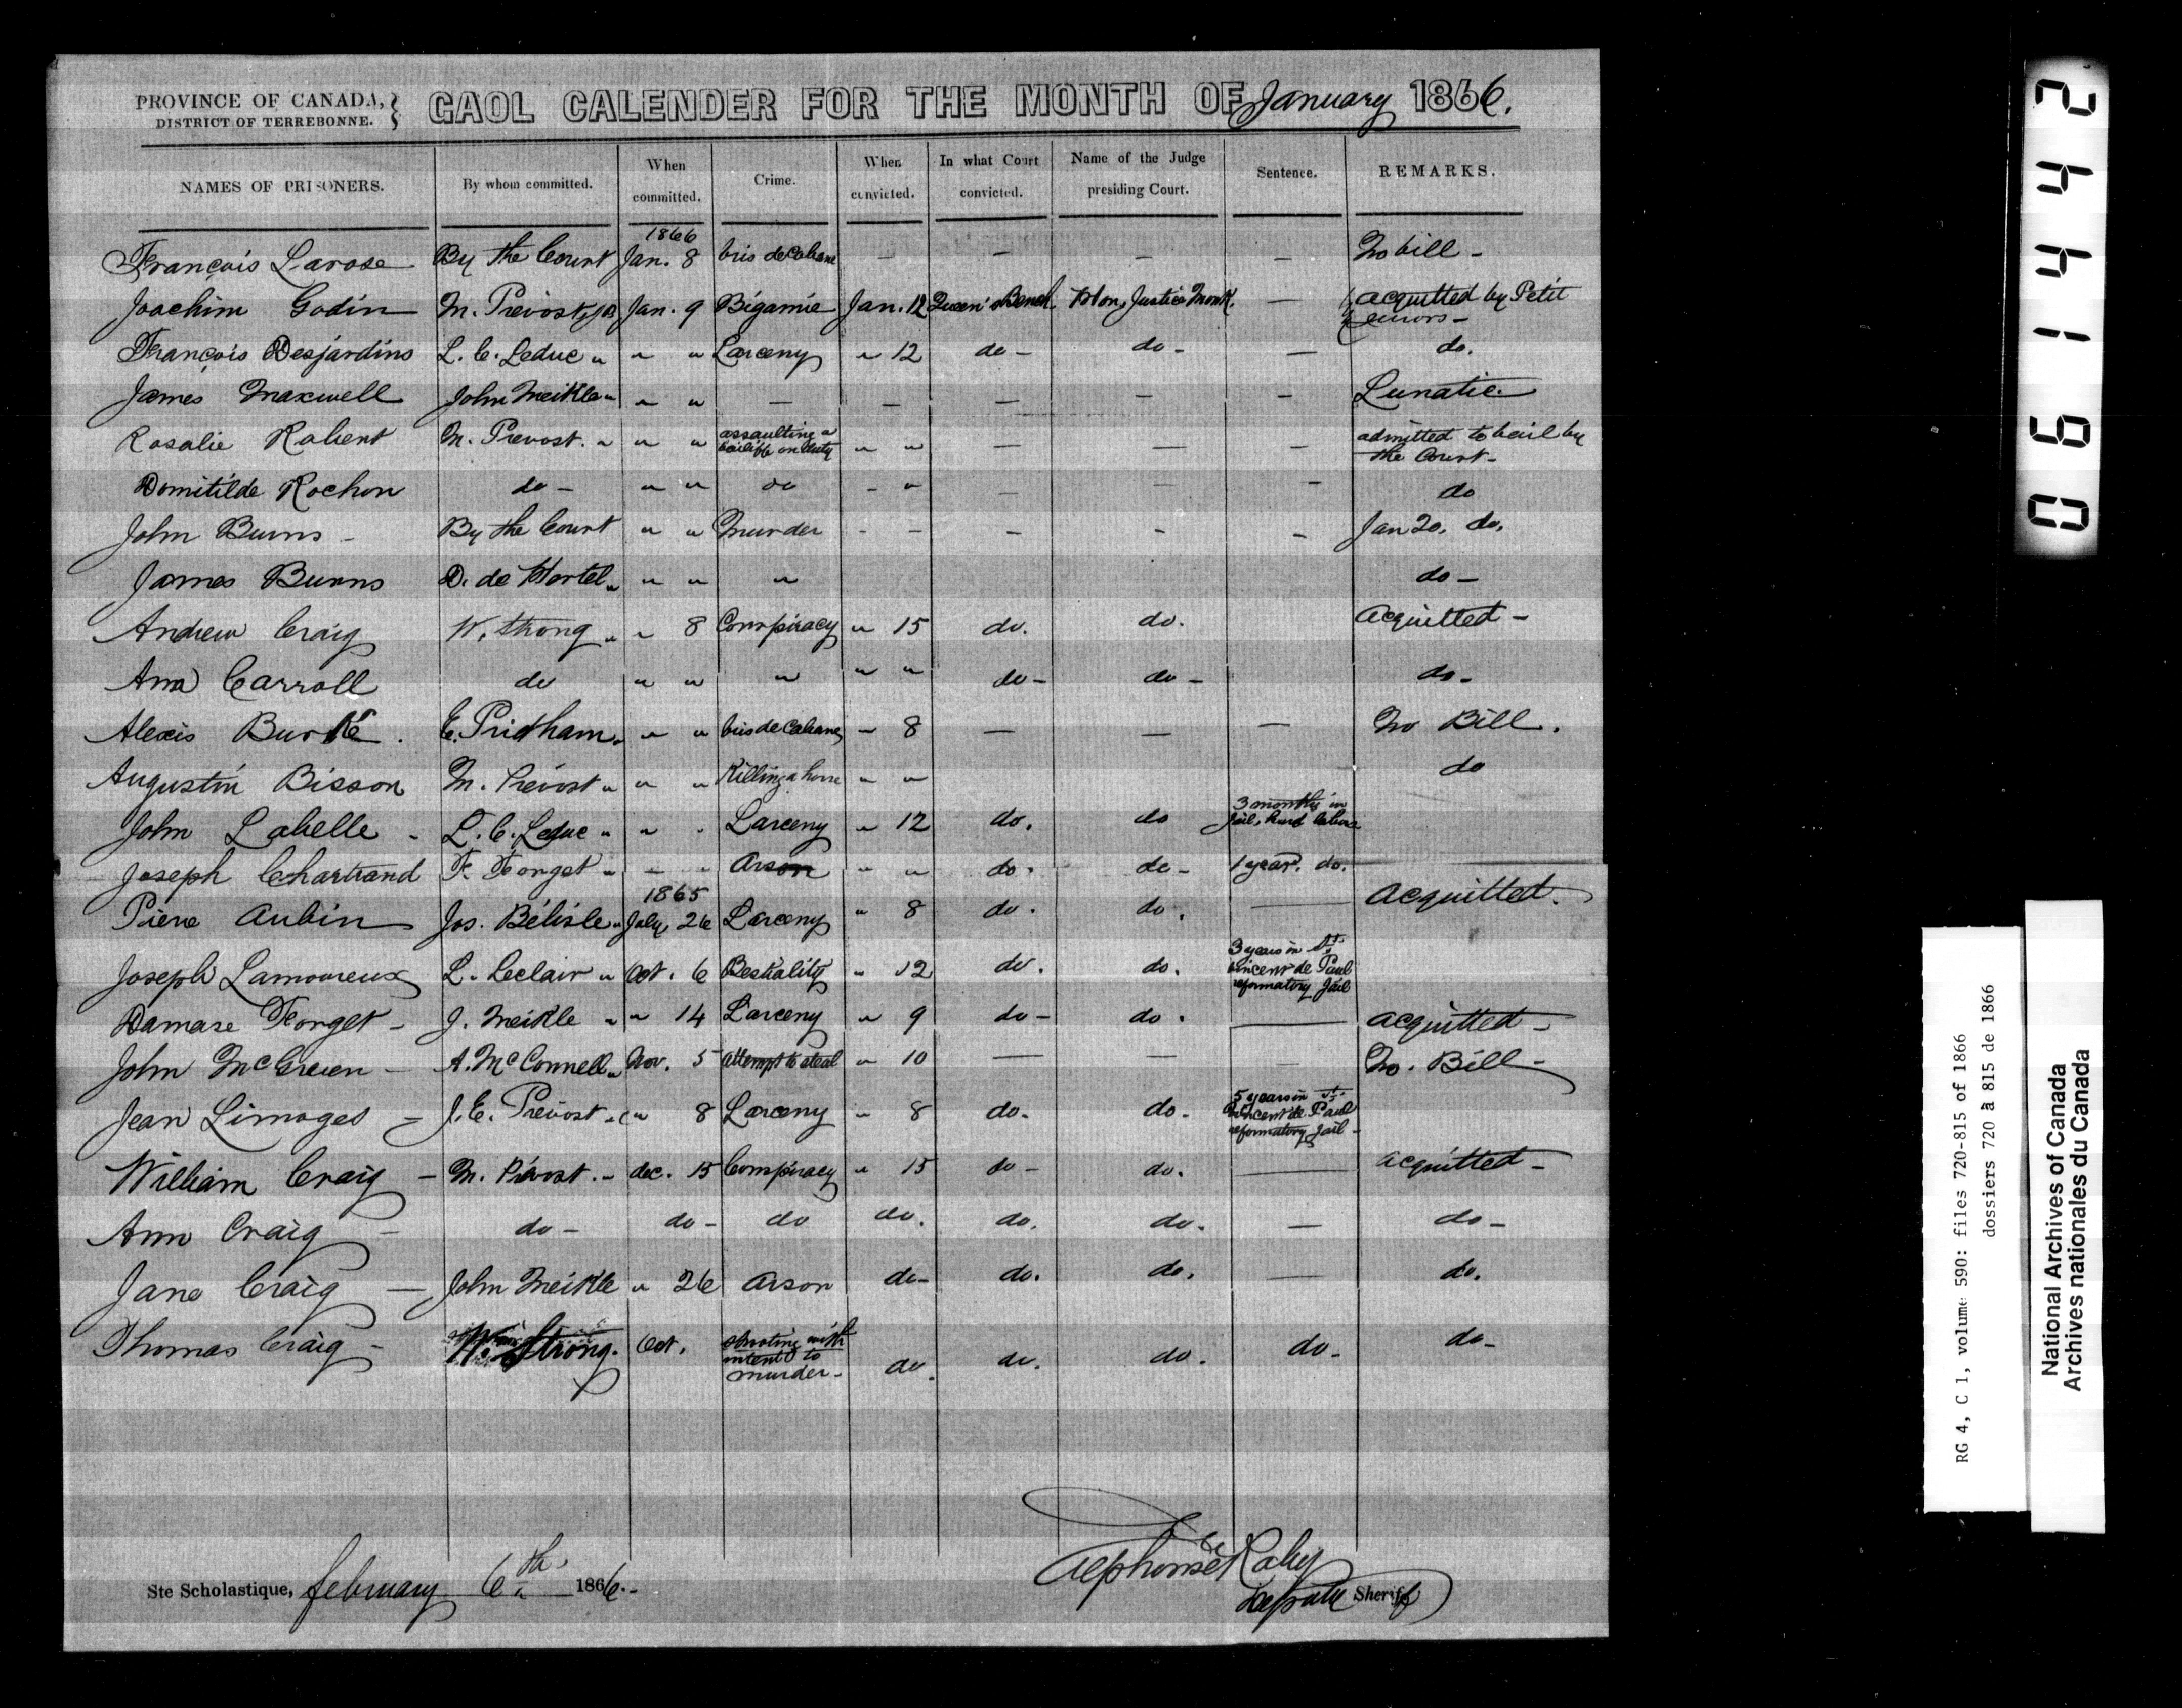 PROVINCE OF CANADA, DISTRICT OF TERREBONNE. } GAOL CALENDER FOR THE MONTH OF January 1866.
NAMES OF PRISONERS. By whom committed. When committed. Crime. When convicted. In what Court convicted. Name of the Judge presiding Court. Sentence. REMARKS.
1866
François Larose By the Court Jan. 8 bris de Cabane — — — — No bill -
Joachim Godin M. Prévost, J.P. Jan. 9 Bigamie Jan. 12 Queen's Bench Hon. Justice Monk. — acquitted by Petit jurors -
François Desjardins L. C. Leduc " " " Larceny " 12 do - do - — do.
James Maxwell John Meikle " " " — — — — - Lunatic.
Rosalie Robert M. Prevost. " " " assaulting a bailiff on duty " " — — - admitted to bail by the Court -
Domitilde Rochon do - " " do - " — — - do
John Burns - By the Court " " Murder - - - - - Jan 20. do.
James Burns D. de Hortel " " " " do -
Andrew Craig W. Strong " " 8 Conspiracy " 15 do. do. acquitted -
Ann Carroll do " " " " " do - do - do -
Alexis Burke. E. Pridham " " " bris de Cabane " 8 — — — No Bill.
Augustin Bisson M. Prévost " " " Killing a horse " " do
John Labelle - L. C. Leduc " " " Larceny " 12 do. do 3 months in jail, hard labour
Joseph Chartrand F. Forget " - " Arson " " do. do - 1 year. do.
1865
Piere Aubin Jos. Bélisle " July 26 Larceny " 8 do. do. — acquitted.
Joseph Lamoureux L. Leclair " Oct. 6 Bestiality " 12 do. do. 3 years in St. Vincent de Paul reformatory Jail
Damase Forget - J. Meikle " " 14 Larceny " 9 do - do. — acquitted -
John McGreen - A. McConnell " Nov. 5 attempt to steal " 10 — — — No. Bill -
Jean Limoges - J. E. Prévost " " 8 Larceny " 8 do. do - 5 years in St. Vincent de Paul reformatory Jail -
William Craig - M. Prévost. - dec. 15 Conspiracy " 15 do - do. — acquitted -
Ann Craig - do - do - do do. do. do. — do -
Jane Craig — John Meikle " 26 Arson do - do. do. — do.
Thomas Craig - W. Strong. Oct. shooting with intent to murder - do. do. do. do - do -
Ste Scholastique, february 6th 1866.-
Alphonse Raby
Deputy Sheriff
061442
RG 4, C 1, volume 590: files 720-815 of 1866
dossiers 720 à 815 de 1866
National Archives of Canada
Archives nationales du Canada